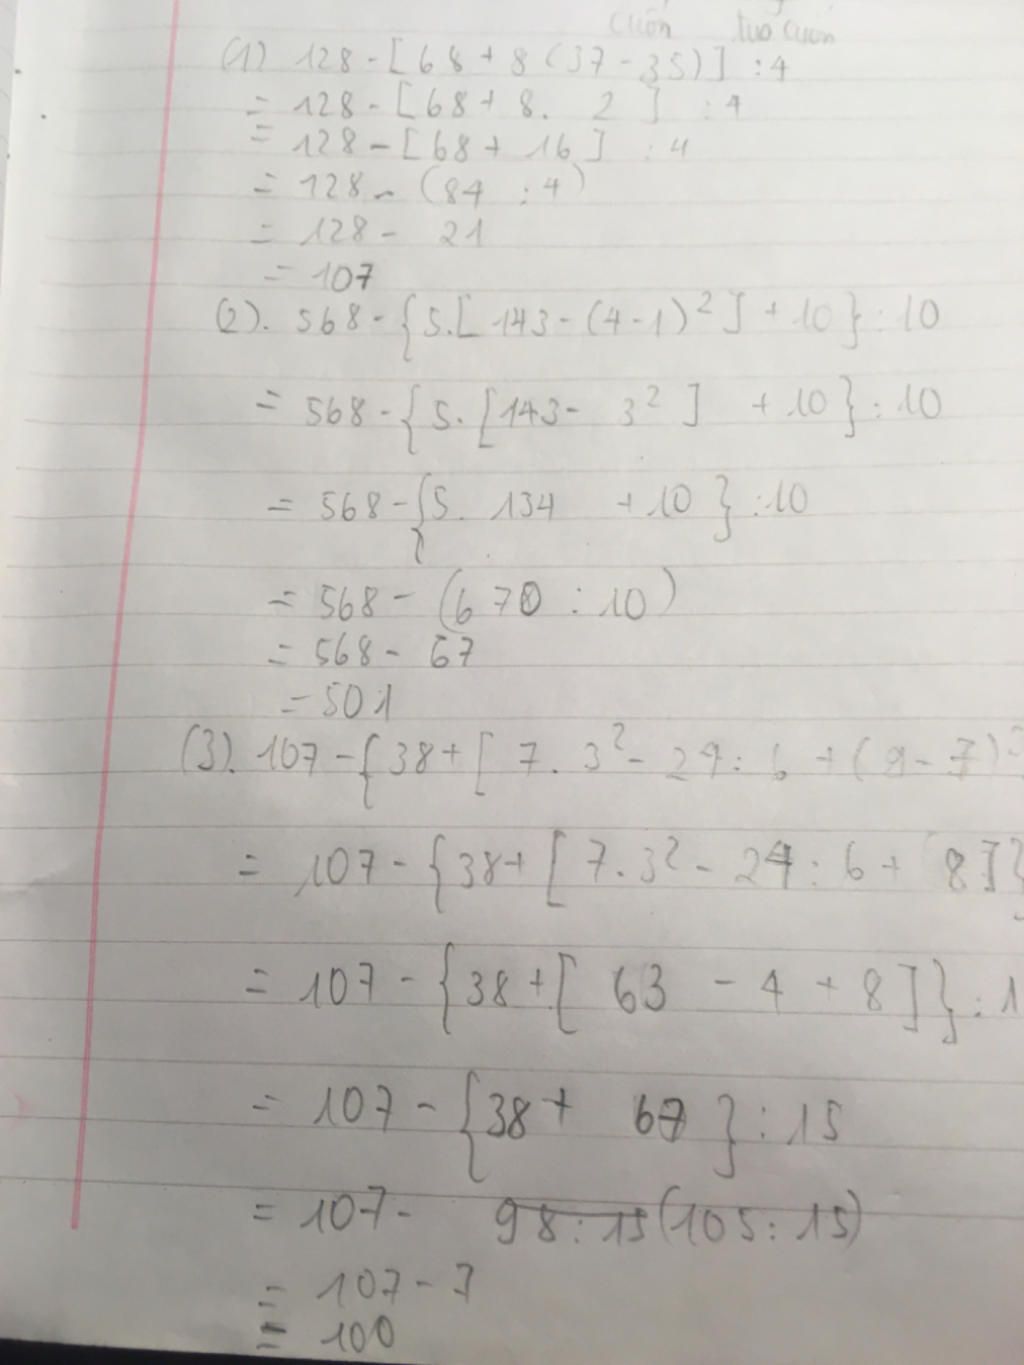 cuốn
(1) 128 - [68 + 8 (37 - 35)] : 4
= 128 - [68 + 8. 2 ] : 4
= 128 - [68 + 16] : 4
= 128 - (84 : 4)
= 128 - 21
= 107
(2). 568 - {5.[ 143 - (4 - 1)² ] + 10} : 10
= 568 - {5. [143 - 3² ] + 10} : 10
= 568 - {5. 134 + 10 } : 10
= 568 - (670 : 10)
= 568 - 67
= 501
(3). 107 - {38 + [ 7. 3² - 24 : 6 + (9 - 7)³
= 107 - {38 + [ 7. 3² - 24 : 6 + 8 ]}
= 107 - {38 + [ 63 - 4 + 8 ]} : 1
= 107 - {38 + 67 } : 15
= 107 - 98 : 15 (105 : 15)
= 107 - 7
= 100